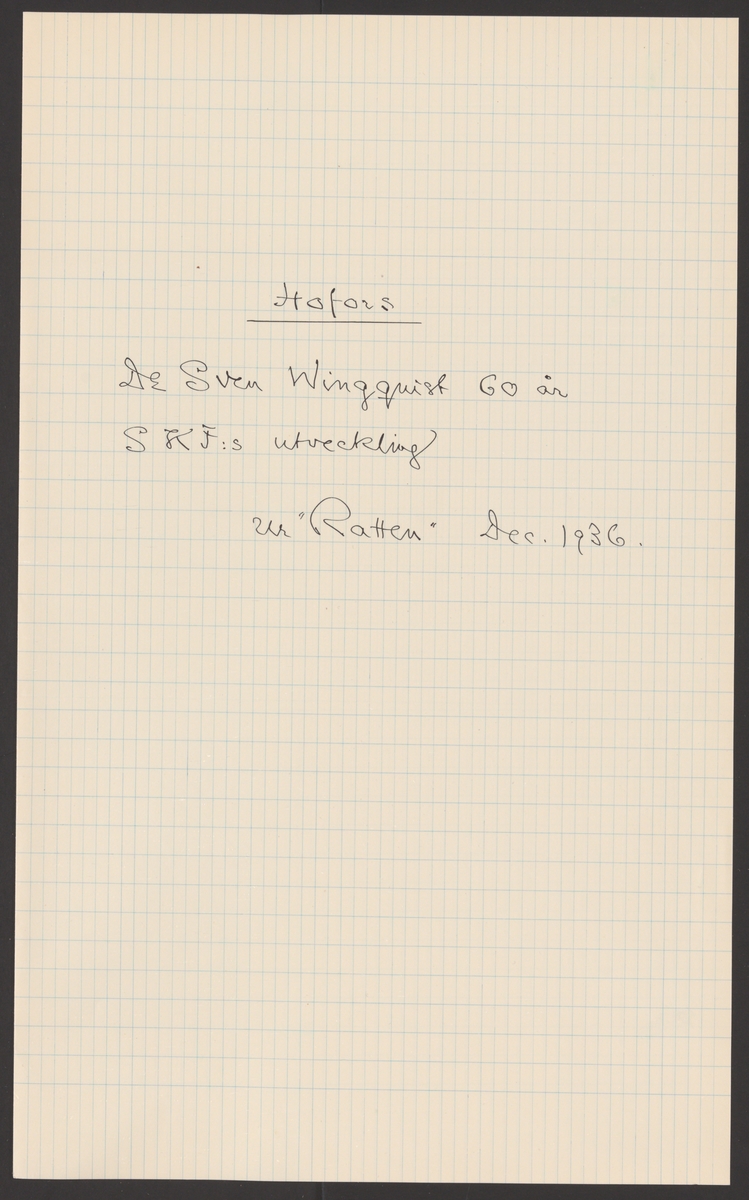 Hofors
Dr Sven Wingquist 60 år
SKF:s utveckling
Ur "Ratten" Dec. 1936.